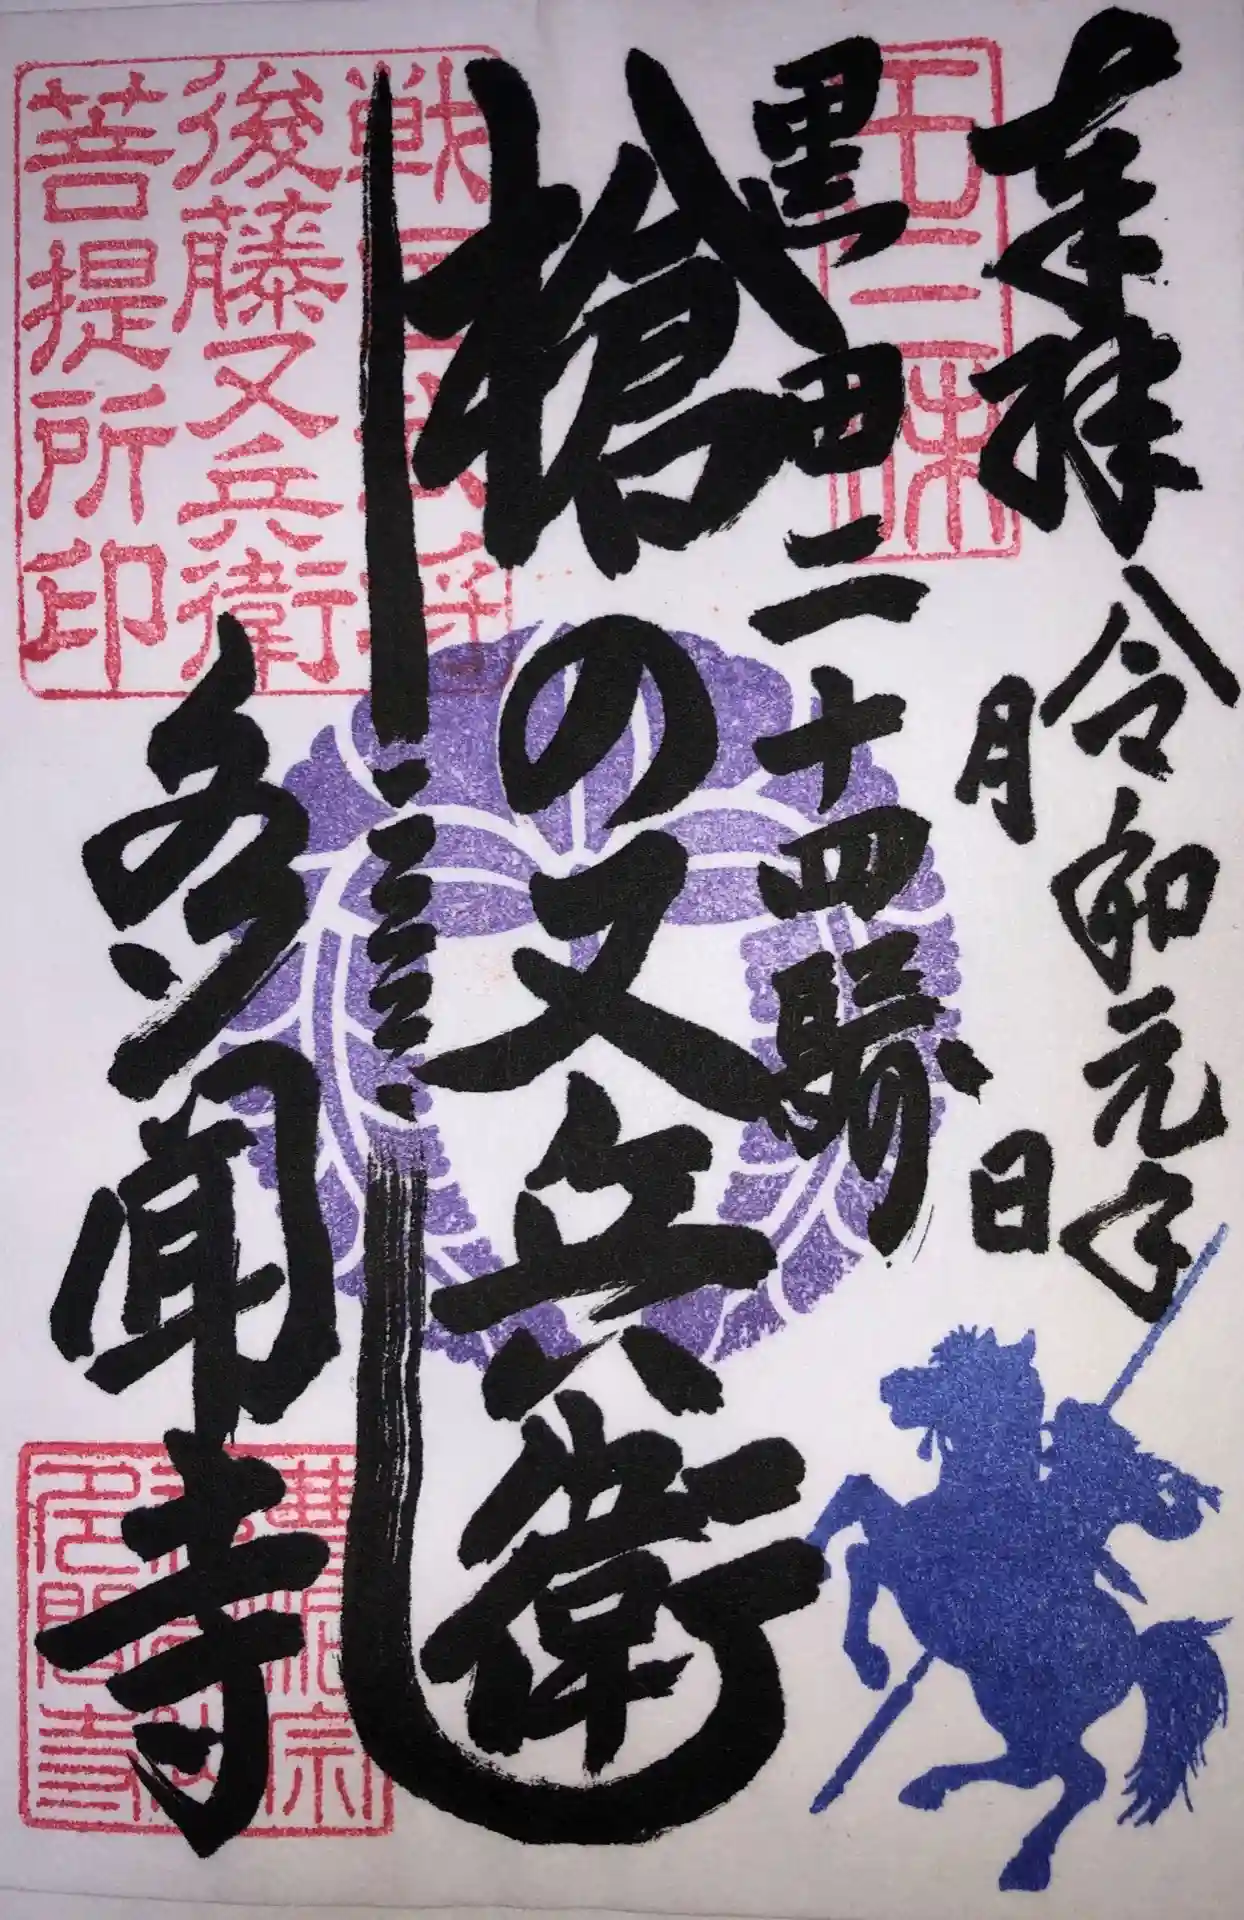 奉拝
令和元年
月
日
黒田二十四騎
槍の又兵衛
多聞寺
五三昧
戦国武将
後藤又兵衛
菩提所印